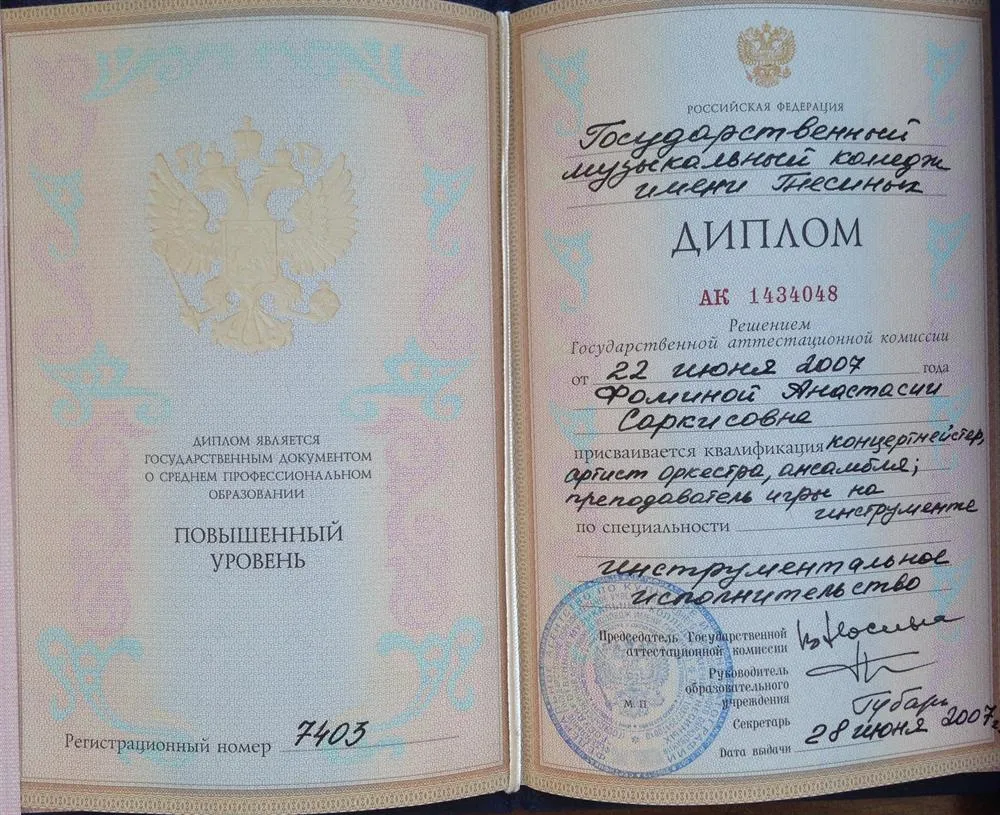 ДИПЛОМ ЯВЛЯЕТСЯ
ГОСУДАРСТВЕННЫМ ДОКУМЕНТОМ
О СРЕДНЕМ ПРОФЕССИОНАЛЬНОМ
ОБРАЗОВАНИИ
ПОВЫШЕННЫЙ
УРОВЕНЬ
Регистрационный номер 7403
РОССИЙСКАЯ ФЕДЕРАЦИЯ
Государственный
музыкальный колледж
имени Гнесиных
ДИПЛОМ
АК 1434048
Решением
Государственной аттестационной комиссии
от 22 июня 2007 года
Фоминой Анастасии
Саркисовна
присваивается квалификация концертмейстер,
артист оркестра, ансамбля;
преподаватель игры на
инструменте
по специальности
инструментальное
исполнительство
Председатель Государственной
аттестационной комиссии
Руководитель
образовательного
учреждения
М П
Секретарь Губарь
Дата выдачи 28 июня 2007г.